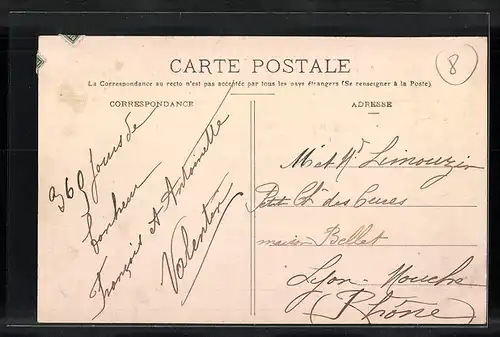 CARTE POSTALE
8
La Correspondance au recto n'est pas acceptée par tous les pays étrangers (Se renseigner à la Poste).
CORRESPONDANCE
ADRESSE
365 jours de
bonheur
François et Antoinette
Valentin
M et Limouzin
Petit Ch des Cures
maison Bellet
Lyon - Mouche
(Rhône)